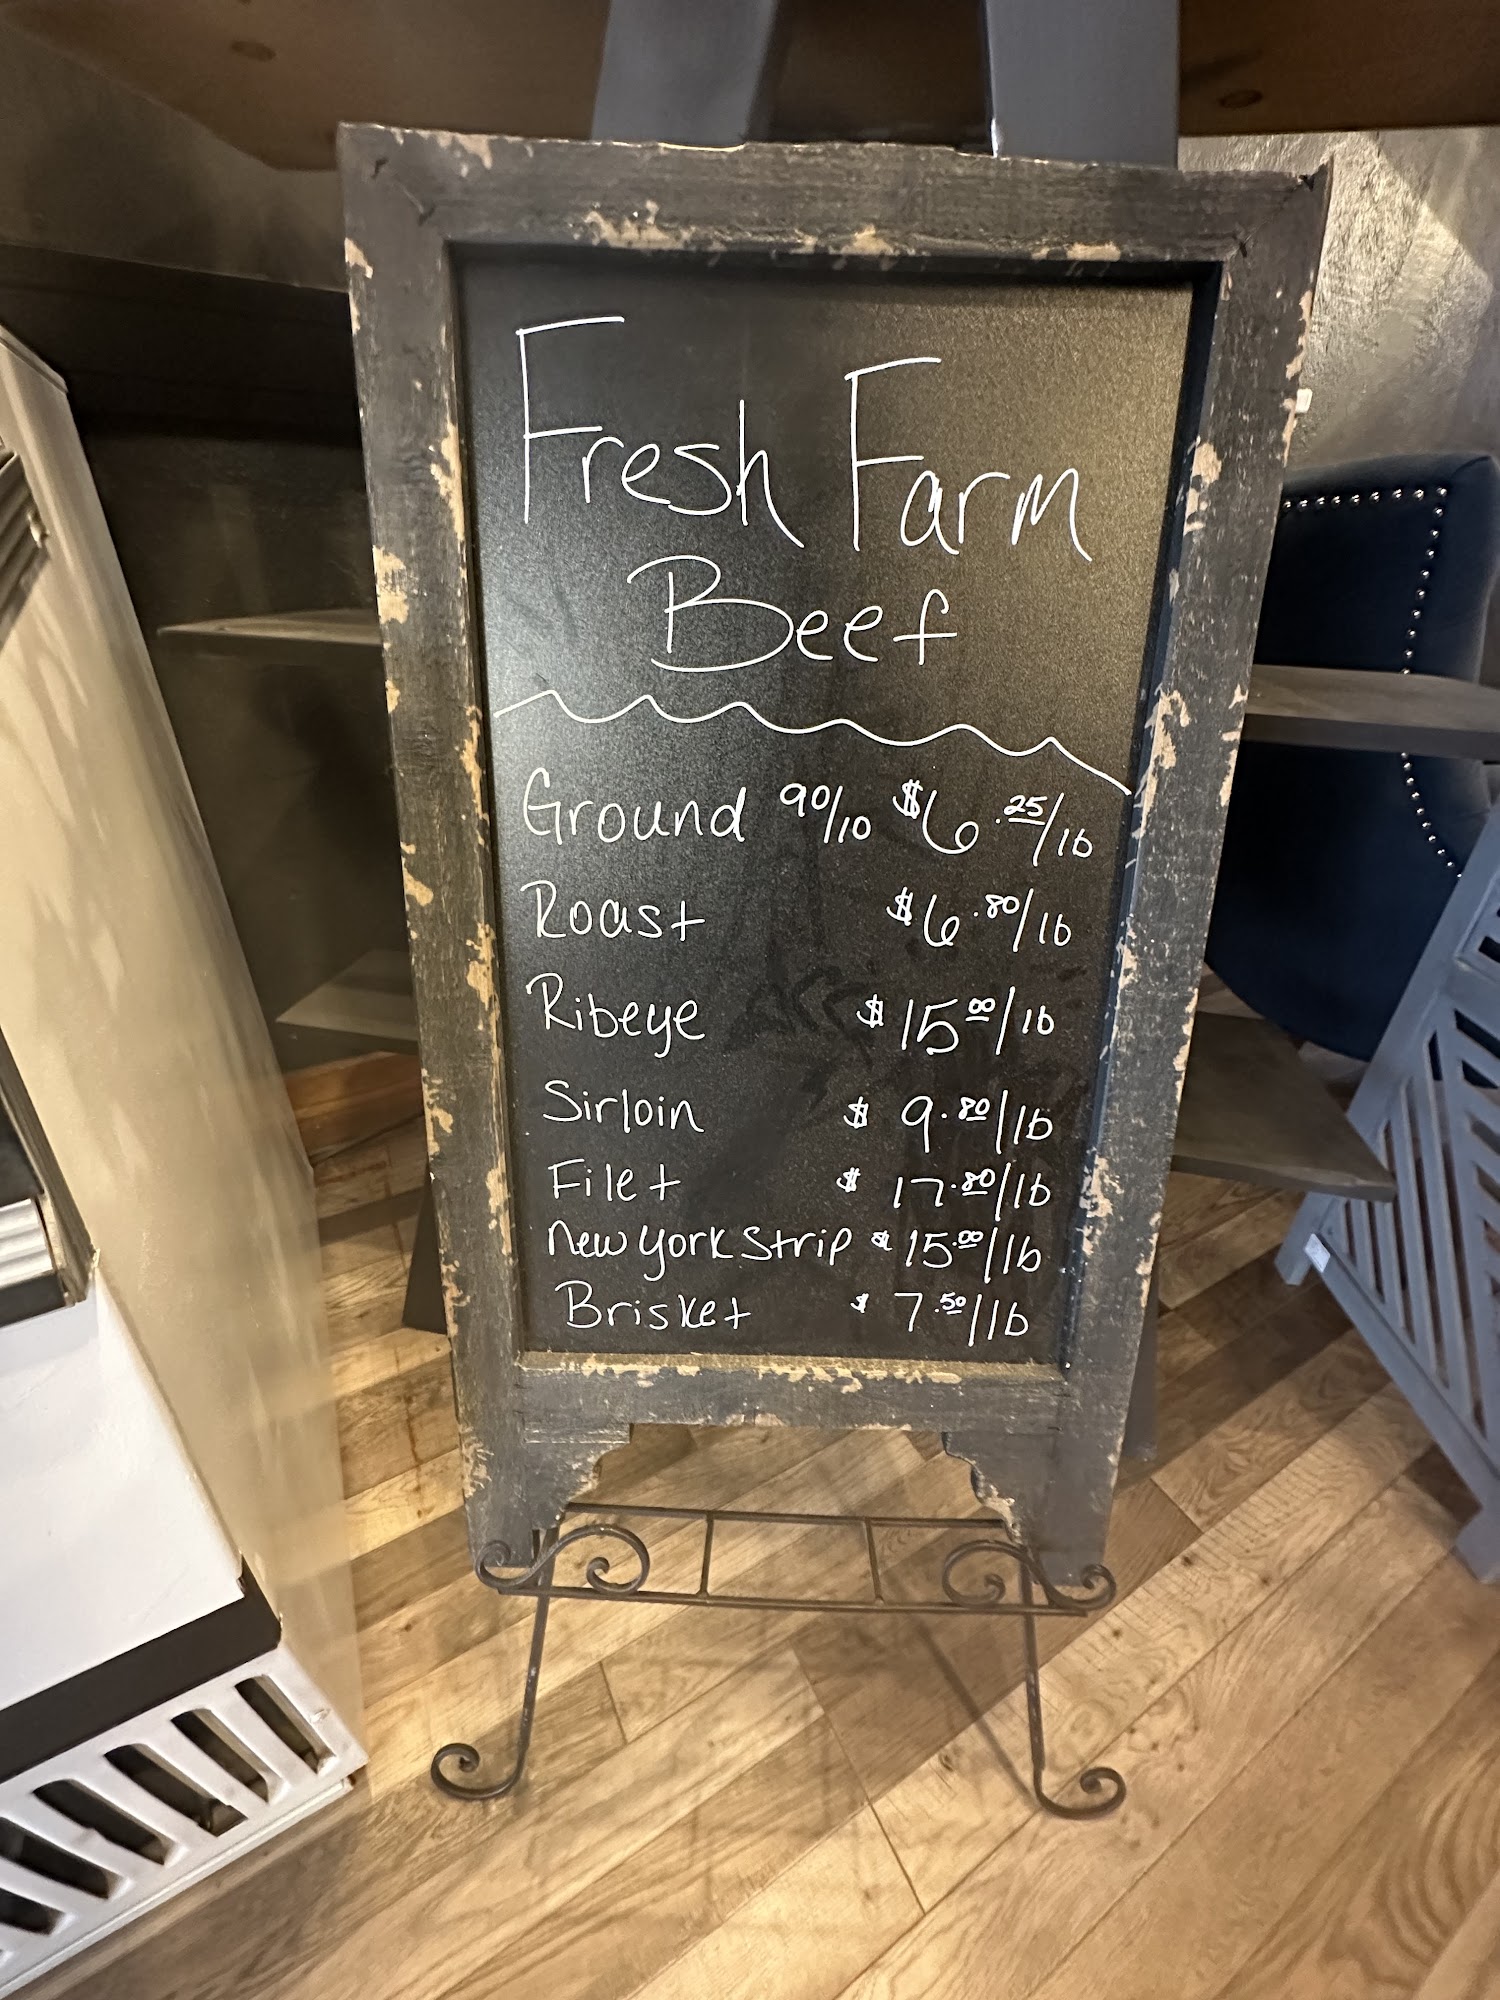 Fresh Farm
Beef
Ground 90/10 $6.25/lb
Roast $6.80/lb
Ribeye $15.00/lb
Sirloin $9.80/lb
Filet $17.80/lb
New York Strip $15.00/lb
Brisket $7.50/lb